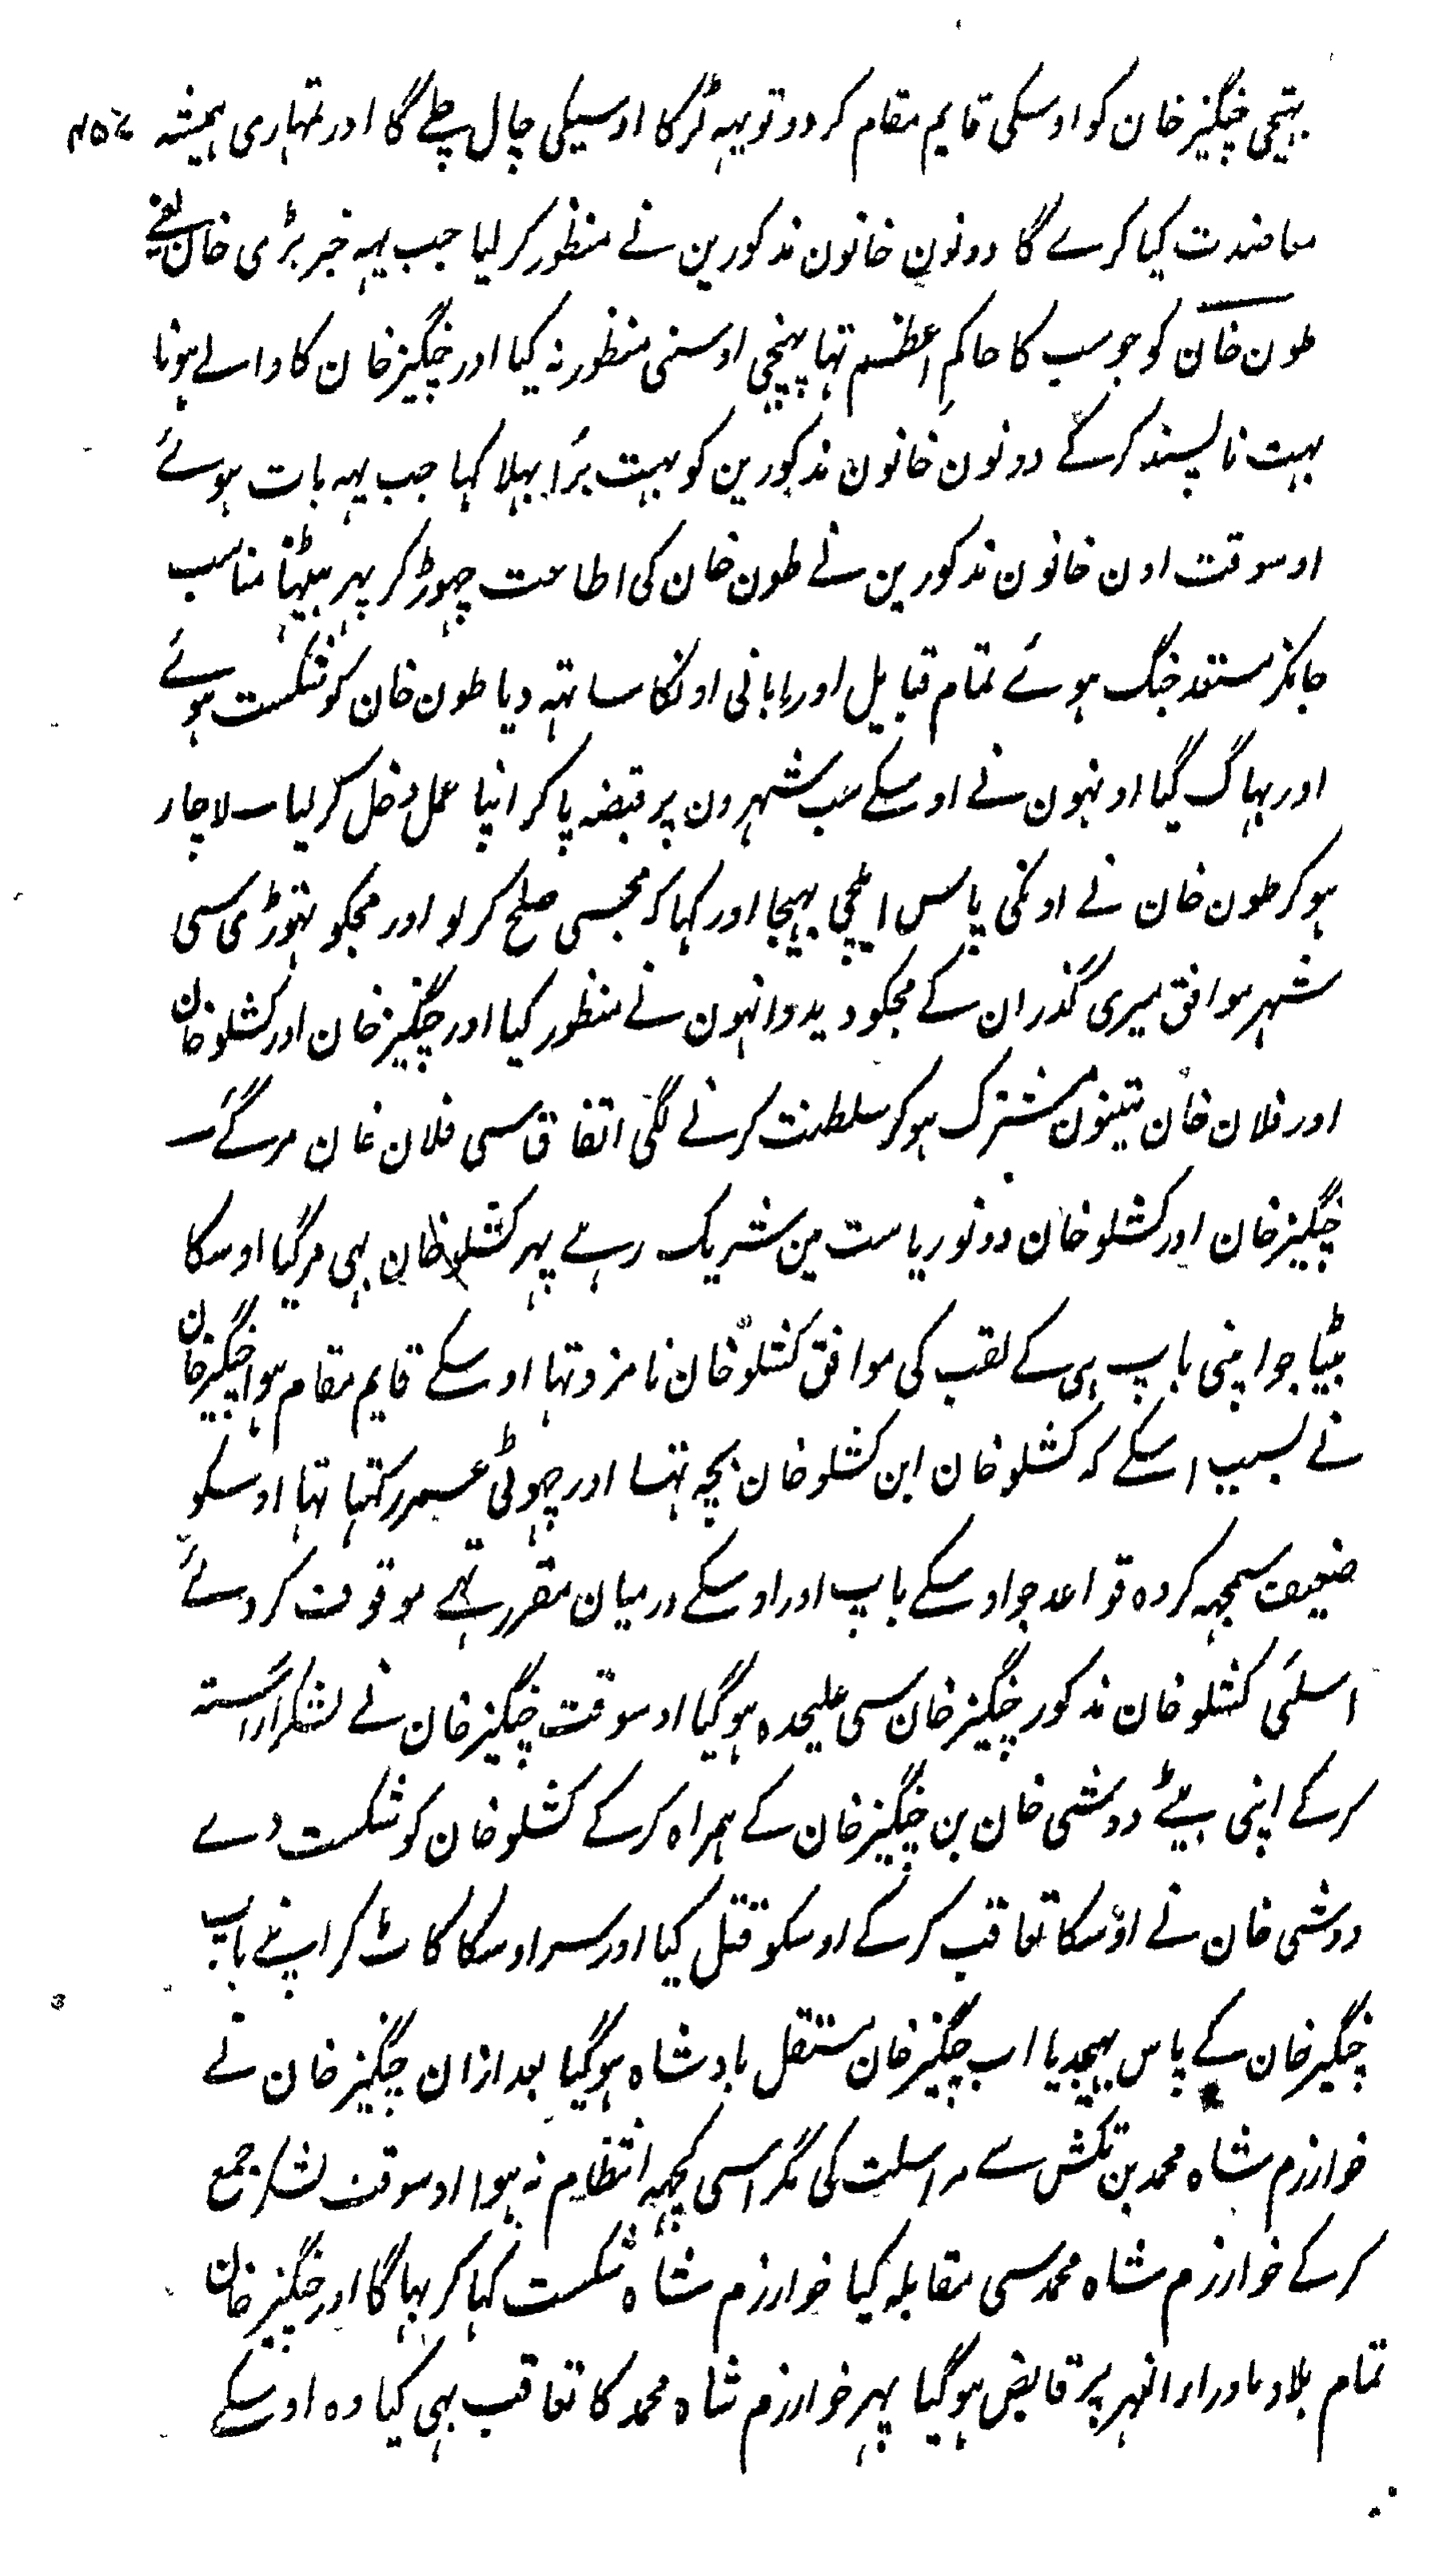 بہتیجی چنگیز خان کو اوسکی قایم مقام کردو تو یہہ لڑکا اوسیکی چال چلے گا اور تمہاری ہمیشہ
معاضدت کیا کرے گا دونون خانون مذکورین نے منظور کر لیا جب یہہ خبر بڑی خان یعنے
طون خان کو جو سب کا حاکم اعظم تہا پہنچی اوسنی منظور نہ کیا اور چنگیز خان کا والے ہونا
بہت ناپسند کرکے دونون خانون مذکورین کو بہت برا بہلا کہا جب یہہ بات ہوئے
اوسوقت اون خانون مذکورین نے طون خان کی اطاعت چہوڑ کر پہر بیٹہنا مناسب
جانکر مستعد جنگ ہوئے تمام قبایل اور اونکا ساتہہ دیا طون خان کو شکست ہوئے
اور بہاگ گیا اونہون نے اوسکے سب شہرون پر قبضہ پا کر اپنا عمل دخل کر لیا لاچار
ہو کر طون خان نے اونکی پاس ایلچی بہیجا اور کہا کہ مجہسی صلح کر لو اور مجکو تہوڑی سی
شہر موافق میری گذران کے مجکو دیدو انہون نے منظور کیا اور چنگیز خان اور کشلو خان
اور فلان خان تینون مشترک ہو کر سلطنت کرنے لگی اتفاق سی فلان خان مر گئے
چنگیز خان اور کشلو خان دونو ریاست مین شریک رہے پہر کشلو خان بہی مر گیا اوسکا
بیٹیا جو اپنی باپ ہی کے لقب کی موافق کشلو خان نامزد تہا اوسکے قایم مقام ہوا چنگیز خان
نے بسبب اسکے کہ کشلو خان ابن کشلو خان بچہ تہا اور چہوٹی عمر رکہتا تہا اوسکو
ضعیف سمجہہ کر وہ قواعد جو اوسکے باپ اور اوسکے درمیان مقرر تہے موقوف کر دئے
اسلئی کشلو خان مذکور چنگیز خان سی علیحدہ ہو گیا اوسوقت چنگیز خان نے لشکر اراستہ
کرکے اپنی بیٹے دوشی خان بن چنگیز خان کے ہمراہ کرکے کشلو خان کو شکست دے
دوشی خان نے اوسکا تعاقب کرکے اوسکو قتل کیا اور سر اوسکا کاٹ کر اپنے باپ
چنگیز خان کے پاس بہیجدیا اب چنگیز خان مستقل بادشاہ ہو گیا بعد ازان چنگیز خان نے
خوارزم شاہ محمد بن تکش سے مراسلت کی مگر اسی کچہہ انتظام نہ ہوا اوسوقت لشکر جمع
کرکے خوارزم شاہ محمد سی مقابلہ کیا خوارزم شاہ شکست کہا کر بہاگا اور چنگیز خان
تمام بلاد ماوراء النہر پر قابض ہو گیا پہر خوارزم شاہ محمد کا تعاقب بہی کیا وہ اوسکے